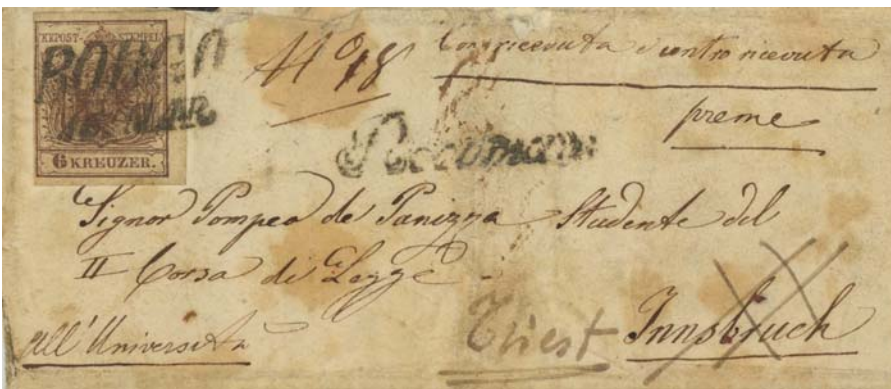 KKPOST-STEMPEL
BORGO
15. MAR.
6 KREUZER.
N° 18
Con ricevuta e contro ricevuta
preme
Recomm:
Signor Pompeo de Panizza Studente del
II Corso di Legge
all'Università
Triest Innsbruch